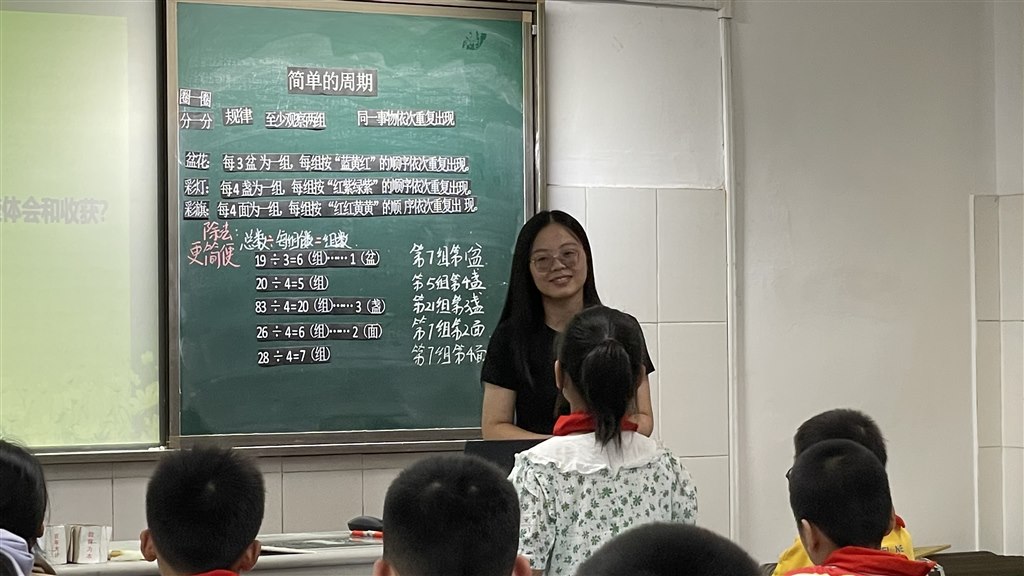 体会和收获?
简单的周期
圈一圈
分一分 规律 至少观察两组 同一事物依次重复出现
盆花: 每3盆为一组, 每组按“蓝黄红”的顺序依次重复出现。
彩灯: 每4盏为一组, 每组按“红紫绿紫”的顺序依次重复出现。
彩旗: 每4面为一组, 每组按“红红黄黄”的顺序依次重复出现。
除法 总数÷每组数=组数
更简便
19÷3=6（组）……1（盆） 第7组第1盆
20÷4=5（组） 第5组第4盏
83÷4=20（组）……3（盏） 第21组第3盏
26÷4=6（组）……2（面） 第7组第2面
28÷4=7（组） 第7组第4面